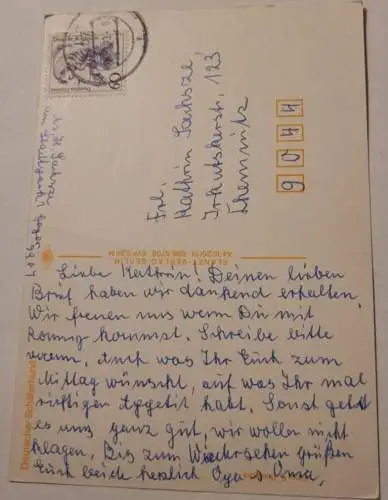 Frl.
Kathrin Sachsze
Irkutskerstr. 123
Chemnitz
9044
60
PLANET-VERLAG BERLIN
Deutscher Schäferhund
Liebe Kathrin! Deinen lieben
Brief haben wir dankend erhalten.
Wir freuen uns wenn Du mit
kommst. Schreibe bitte
wenn, Auch was Ihr Euch zum
Mittag wünscht, auf was Ihr mal
richtigen Appetit habt. Sonst geht
es uns ganz gut, wir wollen nicht
klagen. Bis zum Wiedersehen grüßen
Euch beide herzlich Opa u Oma,